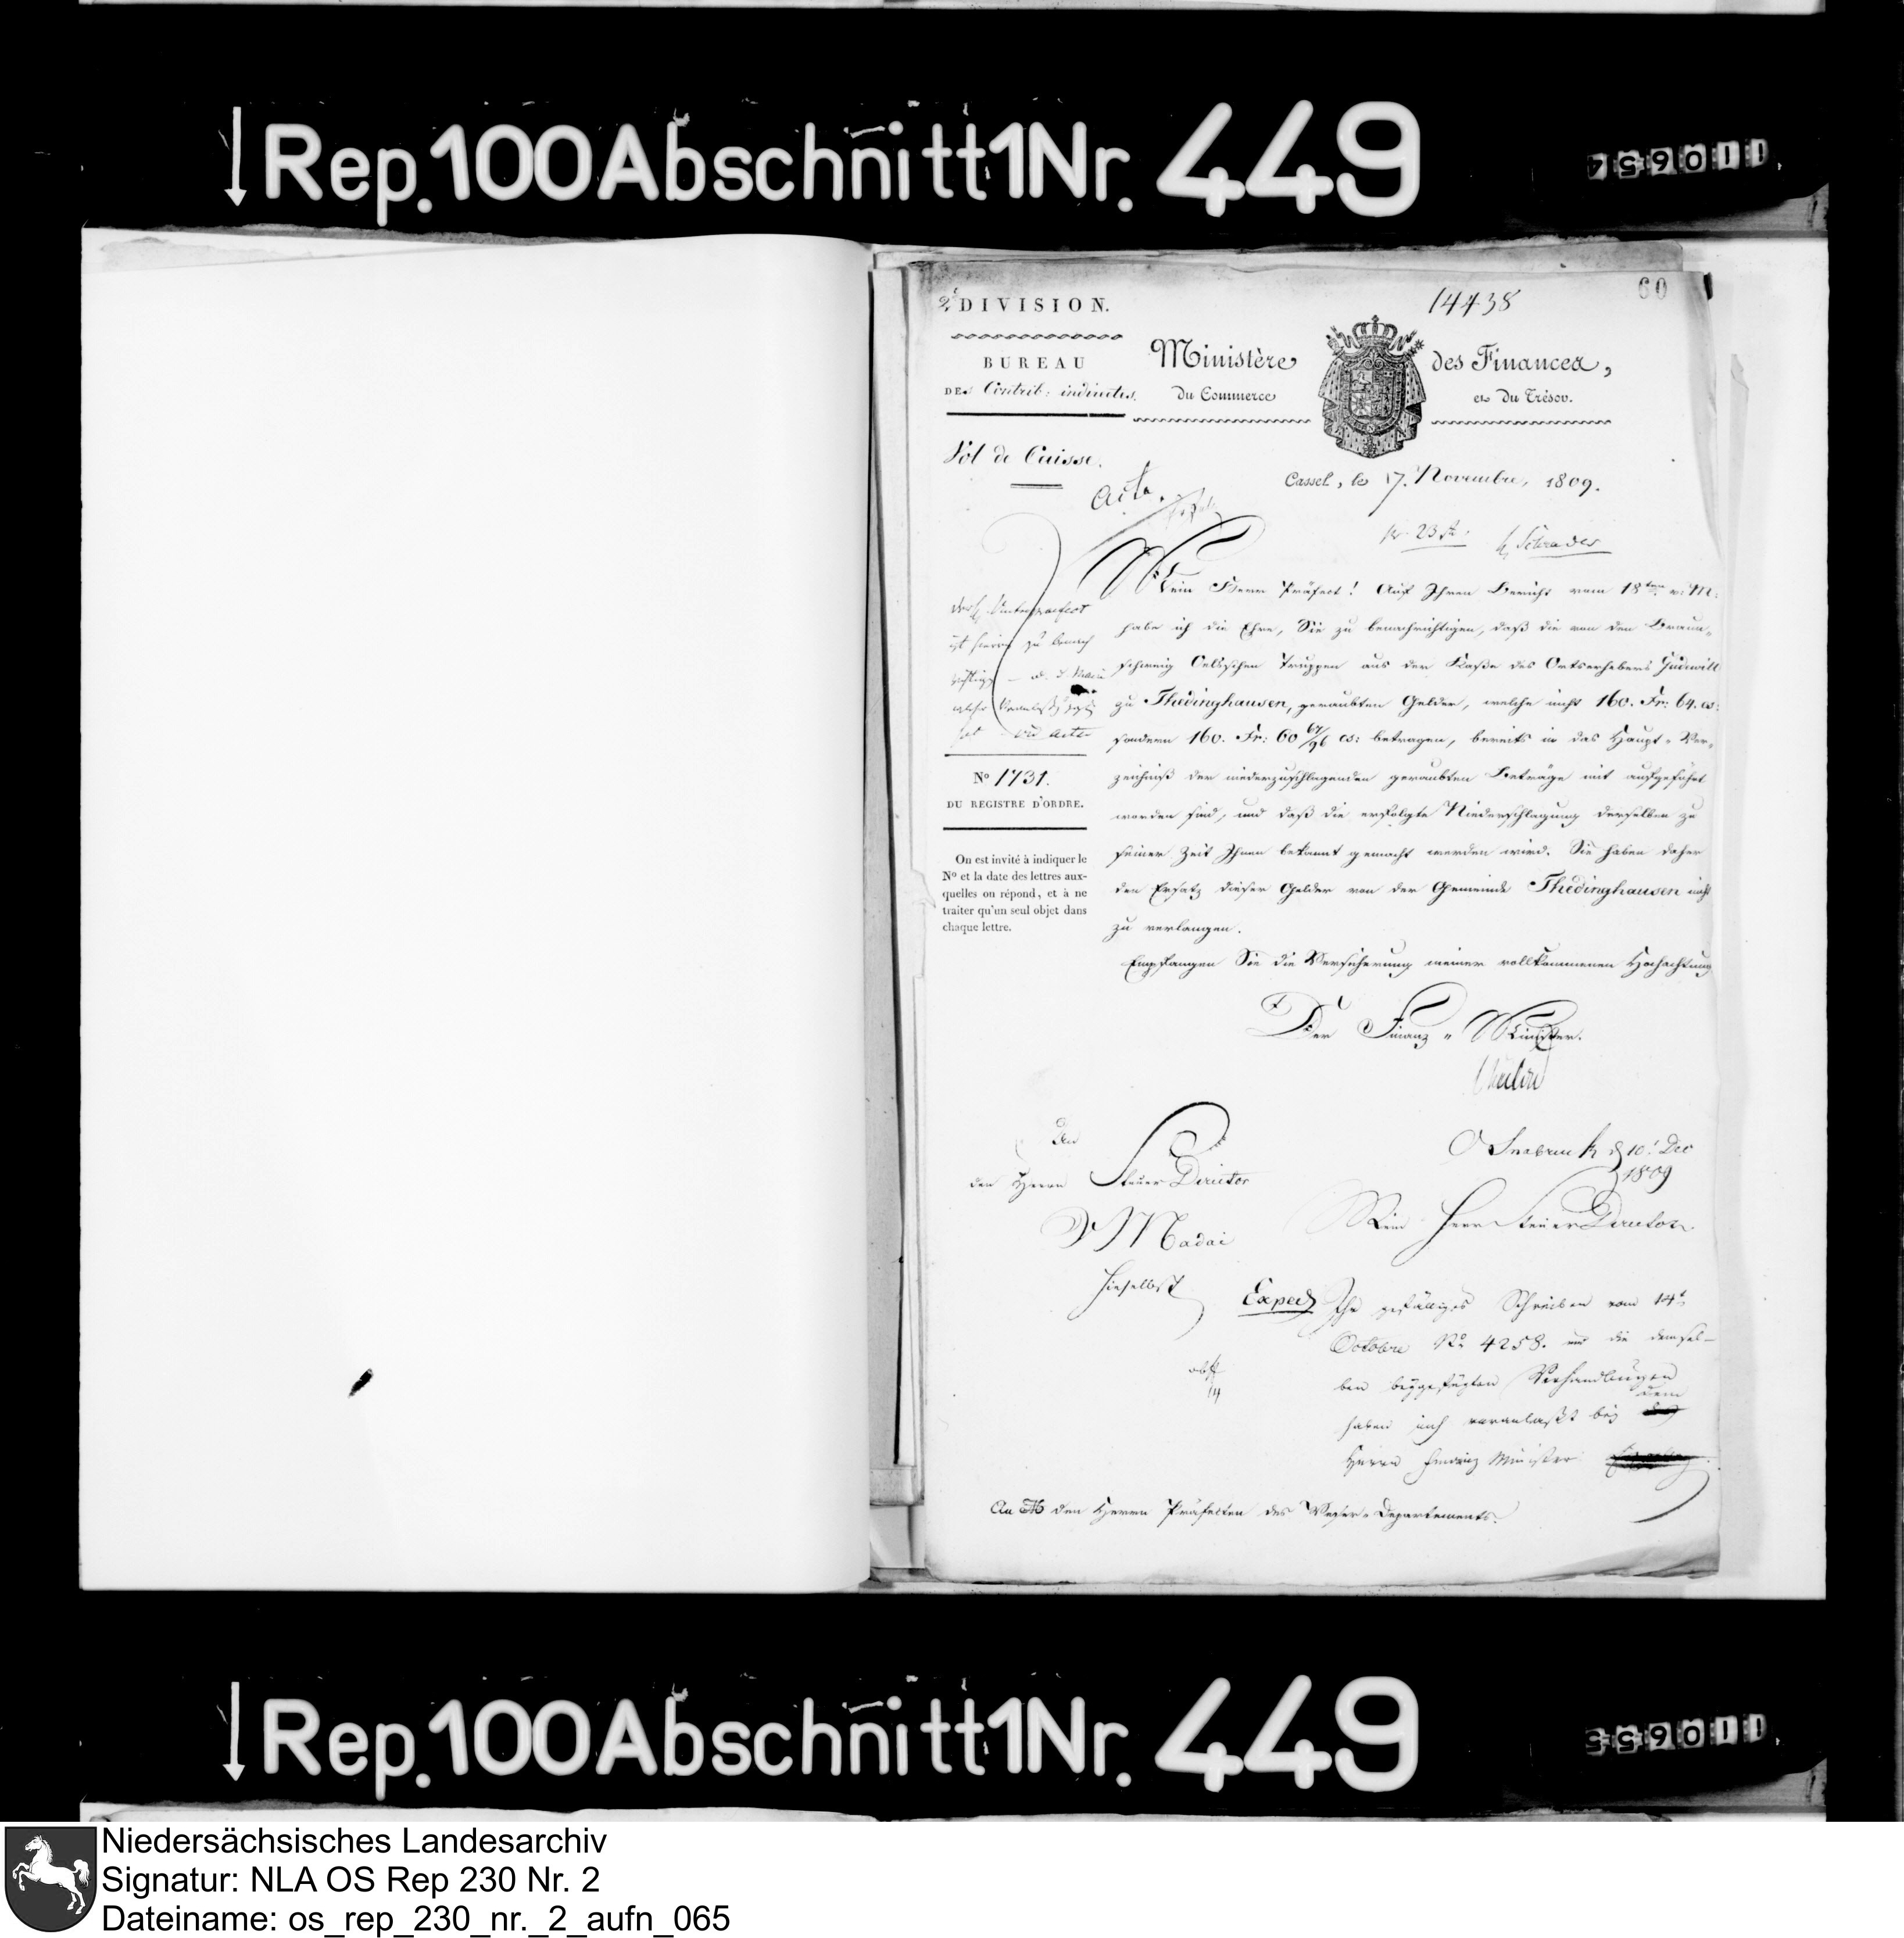 Rep.100Abschnitt1Nr. 449
110654
60
14438
2e DIVISION.
BUREAU
DES Contrib: indirectes.
Ministère des Finances,
du Commerce et du Trésor.
Vol de Caisse.
Cassel, le 17. Novembre, 1809.
Acta.
pr. 23 st.
H Schrader
Mein Herr Präfect! Auf Ihren Bericht vom 18ten v: M:
habe ich die Ehre, Sie zu benachrichtigen, daß die von den Braun-
schweig Oelsschen Truppen aus der Kaße des Ortserhebers Gudewill
zu Thedinghausen, geraubten Gelder, welche nicht 160. Fr: 64. cs:
sondern 160. Fr: 60 67/96 cs: betragen, bereits in das Haupt-Ver-
zeichniß der niederzuschlagenden geraubten Beträge mit aufgeführt
worden sind, und daß die erfolgte Niederschlagung derselben zu
seiner Zeit Ihnen bekannt gemacht werden wird. Sie haben daher
den Ersatz dieser Gelder von der Gemeinde Thedinghausen nicht
zu verlangen.
Empfangen Sie die Versicherung meiner vollkommenen Hochachtung
Der Finanz-Minister.
der H. Unterpraefect
ist hievon zu benach
richtigen
ad acta
No 1731.
DU REGISTRE D'ORDRE.
On est invité à indiquer le
No et la date des lettres aux-
quelles on répond, et à ne
traiter qu'un seul objet dans
chaque lettre.
An
den Herrn Steuer Director
v Madai
hieselbst
Osnabruck d 10t Dec
1809
Mein Herr Steuer Director.
Exped
Ihr gefälliges Schreiben vom 14t
Octobre No 4258. und die demsel-
ben beygefügten Verhandlungen
haben mich veranlaßt bey dem
Herrn Finanz Minister
An den Herrn Präfekten des Weser-Departements.
Rep.100Abschnitt1Nr. 449
110655
Niedersächsisches Landesarchiv
Signatur: NLA OS Rep 230 Nr. 2
Dateiname: os_rep_230_nr._2_aufn_065